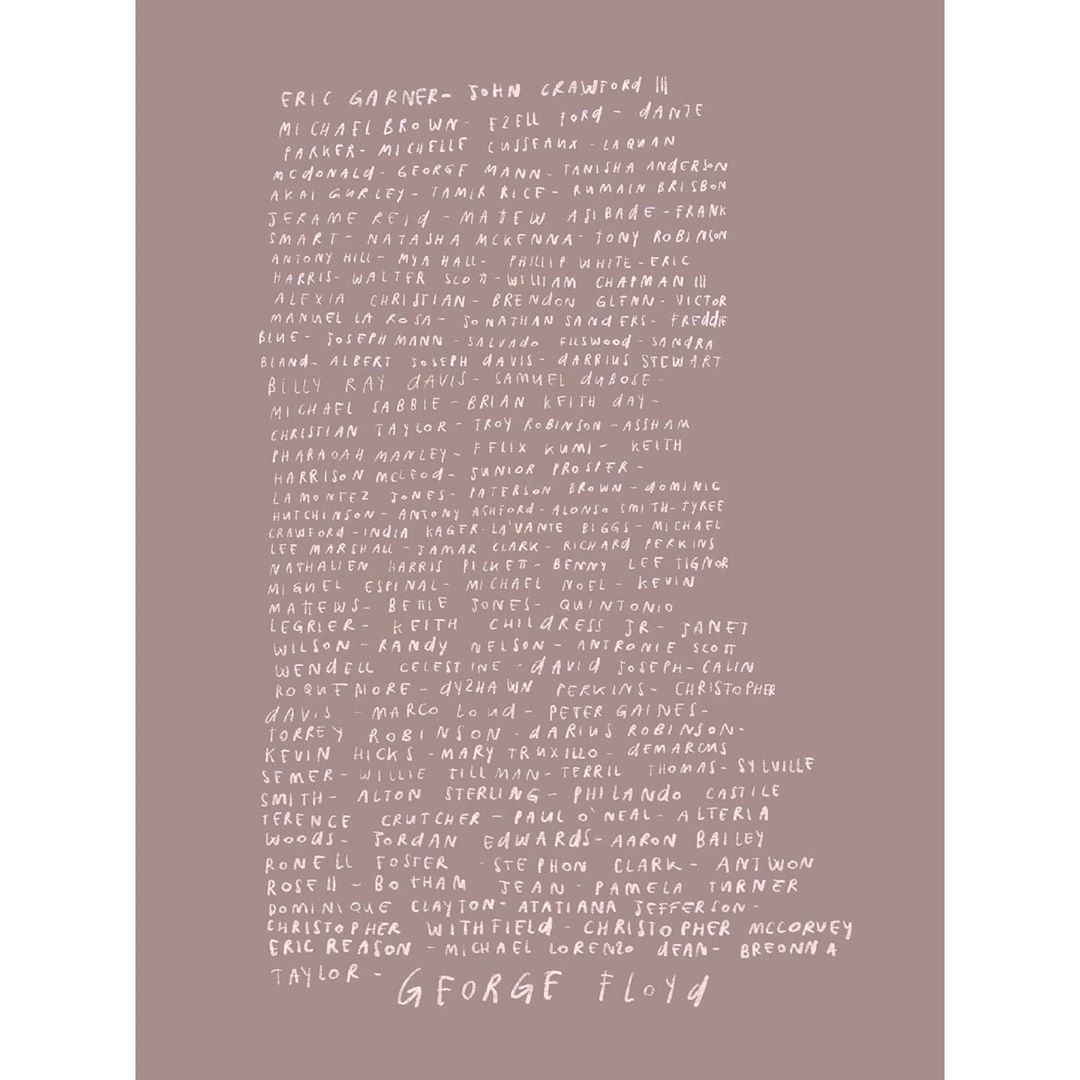 ERIC GARNER- JOHN CRAWFORD III
MICHAEL BROWN- EZELL FORD- DANTE
PARKER- MICHELLE CUSSEAUX- LAQUAN
MCDONALD- GEORGE MANN- TANISHA ANDERSON
AKAI GURLEY- TAMIR RICE- RUMAIN BRISBON
JERAME REID- MATTEW AJIBADE- FRANK
SMART- NATASHA MCKENNA- TONY ROBINSON
ANTONY HILL- MYA HALL- PHILLIP WHITE- ERIC
HARRIS- WALTER SCOTT- WILLIAM CHAPMAN III
ALEXIA CHRISTIAN- BRENDON GLENN- VICTOR
MANUEL LA ROSA- JONATHAN SANDERS- FREDDIE
BLUE- JOSEPH MANN- SALVADO ELLSWOOD- SANDRA
BLAND- ALBERT JOSEPH DAVIS- DARRIUS STEWART
BILLY RAY DAVIS- SAMUEL DUBOSE-
MICHAEL SABBIE- BRIAN KEITH DAY-
CHRISTIAN TAYLOR- TROY ROBINSON- ASSHAM
PHARAOAH MANLEY- FELIX KUMI- KEITH
HARRISON MCLEOD- JUNIOR PROSPER-
LAMONTEZ JONES- PATERSON BROWN- DOMINIC
HUTCHINSON- ANTONY ASHFORD- ALONSO SMITH- TYREE
CRAWFORD- INDIA KAGER- LA'VANTE BIGGS- MICHAEL
LEE MARSHALL- JAMAR CLARK- RICHARD PERKINS
NATHALIEN HARRIS PICKETT- BENNY LEE TIGNOR
MIGUEL ESPINAL- MICHAEL NOEL- KEVIN
MATTEWS- BETTIE JONES- QUINTONIO
LEGRIER- KEITH CHILDRESS JR- JANET
WILSON- RANDY NELSON- ANTRONIE SCOTT
WENDELL CELESTINE- DAVID JOSEPH- CALIN
ROQUEMORE- DYZHAWN PERKINS- CHRISTOPHER
DAVIS- MARCO LOUD- PETER GAINES-
TORREY ROBINSON- DARIUS ROBINSON-
KEVIN HICKS- MARY TRUXILLO- DEMARCUS
SEMER- WILLIE TILLMAN- TERRIL THOMAS- SYLVILLE
SMITH- ALTON STERLING- PHILANDO CASTILE
TERENCE CRUTCHER- PAUL O'NEAL- ALTERIA
WOODS- JORDAN EDWARDS- AARON BAILEY
RONELL FOSTER- STEPHON CLARK- ANTWON
ROSE II- BOTHAM JEAN- PAMELA TURNER
DOMINIQUE CLAYTON- ATATIANA JEFFERSON-
CHRISTOPHER WITHFIELD- CHRISTOPHER MCCORVEY
ERIC REASON- MICHAEL LORENZO DEAN- BREONNA
TAYLOR- GEORGE FLOYD